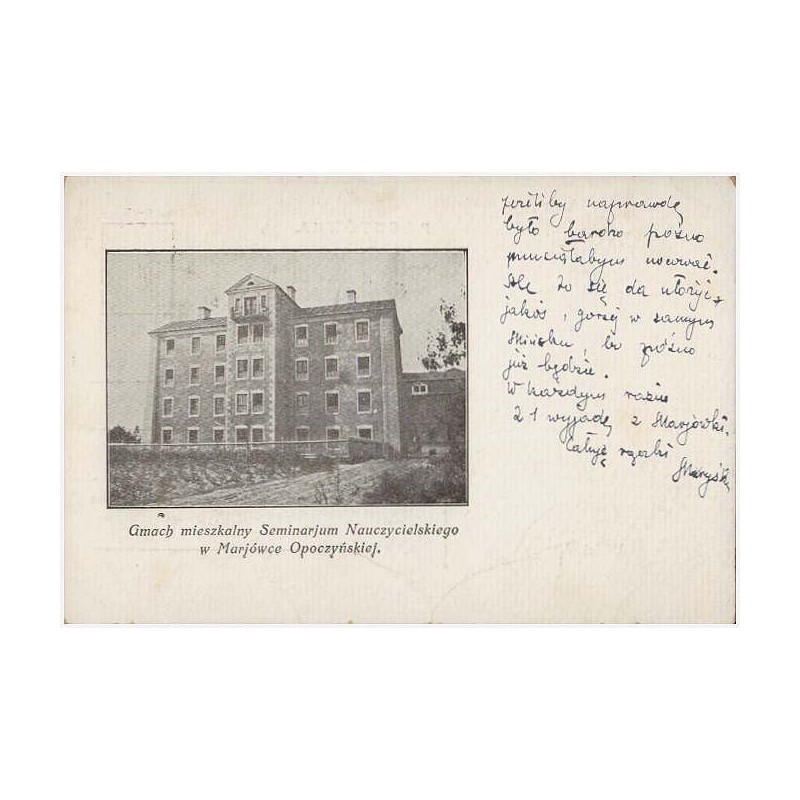 jeśliby naprawdę
było bardzo późno
musiałabym nocować.
Ale to się da ułożyć
jakoś, gorzej w samym
Mińsku, bo późno
już będzie.
W każdym razie
21 wyjadę z Marjówki.
Całuję rączki
Maryśka
Gmach mieszkalny Seminarjum Nauczycielskiego
w Marjówce Opoczyńskiej.